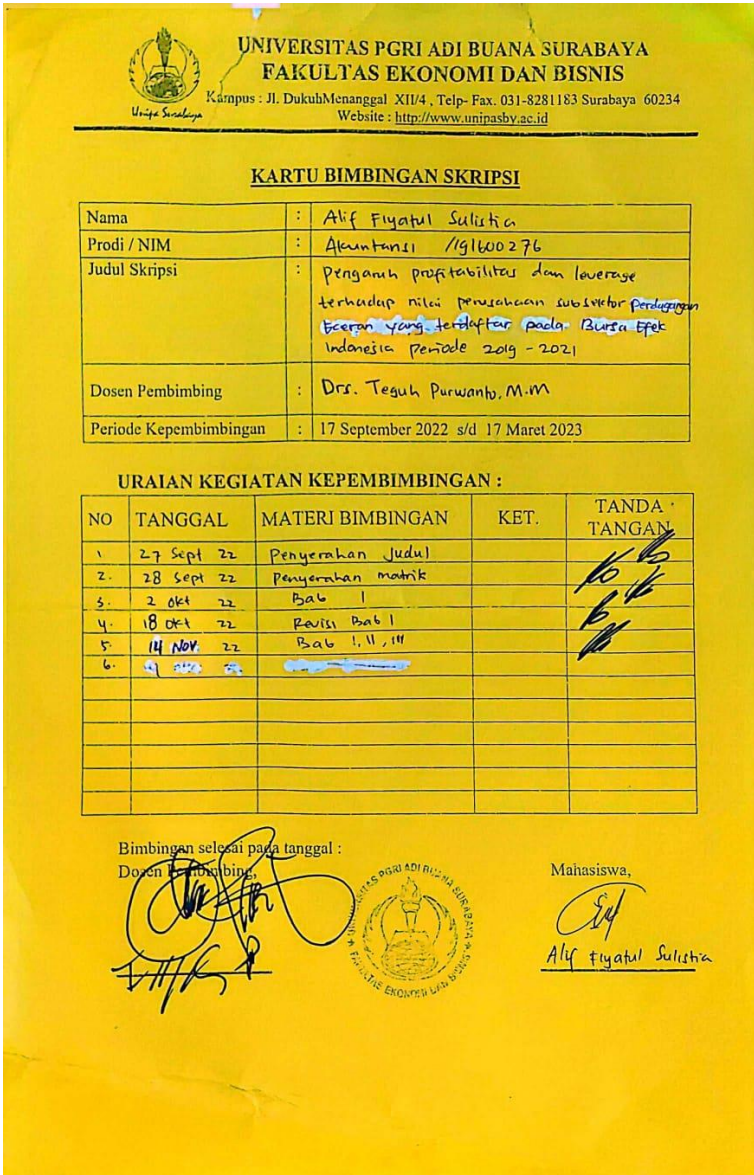 UNIVERSITAS PGRI ADI BUANA SURABAYA
FAKULTAS EKONOMI DAN BISNIS
Kampus : Jl. DukuhMenanggal XII/4 , Telp- Fax. 031-8281183 Surabaya 60234
Website : http://www.unipasby.ac.id
Unipa Surabaya
KARTU BIMBINGAN SKRIPSI
Nama : Alif Fiyatul Sulistia
Prodi / NIM : Akuntansi /191600276
Judul Skripsi : Pengaruh profitabilitas dan leverage
terhadap nilai perusahaan subsektor perdagangan
Eceran yang terdaftar pada Bursa Efek
Indonesia Periode 2019 - 2021
Dosen Pembimbing : Drs. Teguh Purwanto, M.M
Periode Kepembimbingan : 17 September 2022 s/d 17 Maret 2023
URAIAN KEGIATAN KEPEMBIMBINGAN :
NO TANGGAL MATERI BIMBINGAN KET. TANDA TANGAN
1 27 Sept 22 Penyerahan Judul
2. 28 Sept 22 Penyerahan matrik
3. 2 okt 22 Bab I
4. 18 okt 22 Revisi Bab I
5. 14 Nov. 22 Bab I, II, III
6.
Bimbingan selesai pada tanggal :
Dosen Pembimbing,
Mahasiswa,
UNIVERSITAS PGRI ADI BUANA SURABAYA
FAKULTAS EKONOMI DAN BISNIS
Alif Fiyatul Sulistia